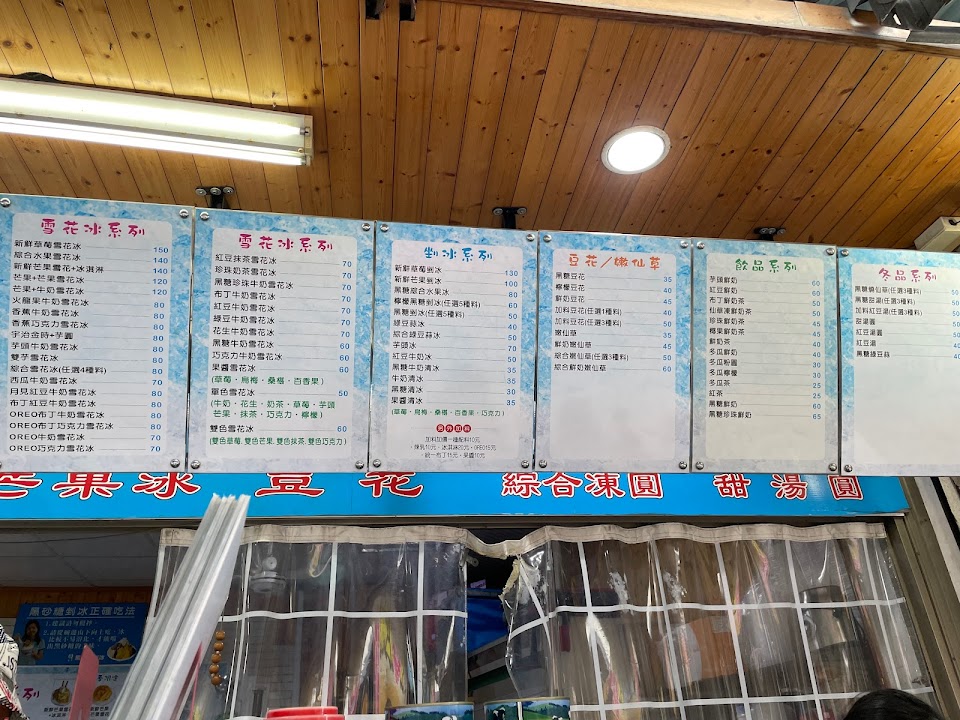 雪花冰系列
新鮮草莓雪花冰 150
綜合水果雪花冰 140
新鮮芒果雪花+冰淇淋 140
芒果+芒果雪花冰 120
芒果+牛奶雪花冰 120
火龍果牛奶雪花冰 80
香蕉牛奶雪花冰 80
香蕉巧克力雪花冰 80
宇治金時+芋圓 80
芋頭牛奶雪花冰 80
雙芋雪花冰 80
綜合雪花冰(任選4種料) 80
西瓜牛奶雪花冰 80
月見紅豆牛奶雪花冰 80
布丁紅豆牛奶雪花冰 80
OREO布丁牛奶雪花冰 80
OREO布丁巧克力雪花冰 80
OREO牛奶雪花冰 70
OREO巧克力雪花冰 70
雪花冰系列
紅豆抹茶雪花冰 70
珍珠奶茶雪花冰 70
黑糖珍珠牛奶雪花冰 70
布丁牛奶雪花冰 70
紅豆牛奶雪花冰 70
綠豆牛奶雪花冰 70
花生牛奶雪花冰 70
黑糖牛奶雪花冰 60
巧克力牛奶雪花冰 60
果醬雪花冰 60
(草莓・烏梅・桑椹・百香果)
單色雪花冰 50
(牛奶・花生・奶茶・草莓・芋頭
芒果・抹茶・巧克力・檸檬)
雙色雪花冰 60
(雙色草莓,雙色芒果,雙色抹茶,雙色巧克力)
剉冰系列
新鮮草莓剉冰 130
新鮮芒果剉冰 100
黑糖綜合水果冰 100
檸檬黑糖剉冰(任選5種料) 60
黑糖剉冰(任選5種料) 50
綠豆蒜冰 40
綜合綠豆蒜冰 50
芋頭冰 70
紅豆牛奶冰 50
黑糖牛奶清冰 35
牛奶清冰 35
黑糖清冰 30
果醬清冰 35
(草莓・烏梅・桑椹・百香果・巧克力)
另外加料
加料加價一種配料10元
煉乳10元、冰淇淋20元、OREO15元
統一布丁15元、果醬10元
豆花/嫩仙草
黑糖豆花 35
檸檬豆花 40
鮮奶豆花 45
加料豆花(任選1種料) 40
加料豆花(任選3種料) 50
嫩仙草 35
鮮奶嫩仙草 45
綜合嫩仙草(任選3種料) 50
綜合鮮奶嫩仙草 60
飲品系列
芋頭鮮奶 60
紅豆鮮奶 60
布丁鮮奶茶 50
仙草凍鮮奶茶 45
珍珠鮮奶茶 45
椰果鮮奶茶 45
鮮奶茶 40
冬瓜鮮奶 40
冬瓜粉圓 30
冬瓜檸檬 30
冬瓜茶 25
紅茶 25
黑糖鮮奶 60
黑糖珍珠鮮奶 65
冬品系列
黑糖燒仙草(任選3種料) 50
黑糖甜湯(任選3種料) 50
加料紅豆湯(任選3種料)
甜湯圓 50
紅豆湯圓 50
紅豆湯 40
黑糖綠豆蒜 40
芒果冰 豆花 綜合凍圓 甜湯圓
黑砂糖剉冰正確吃法